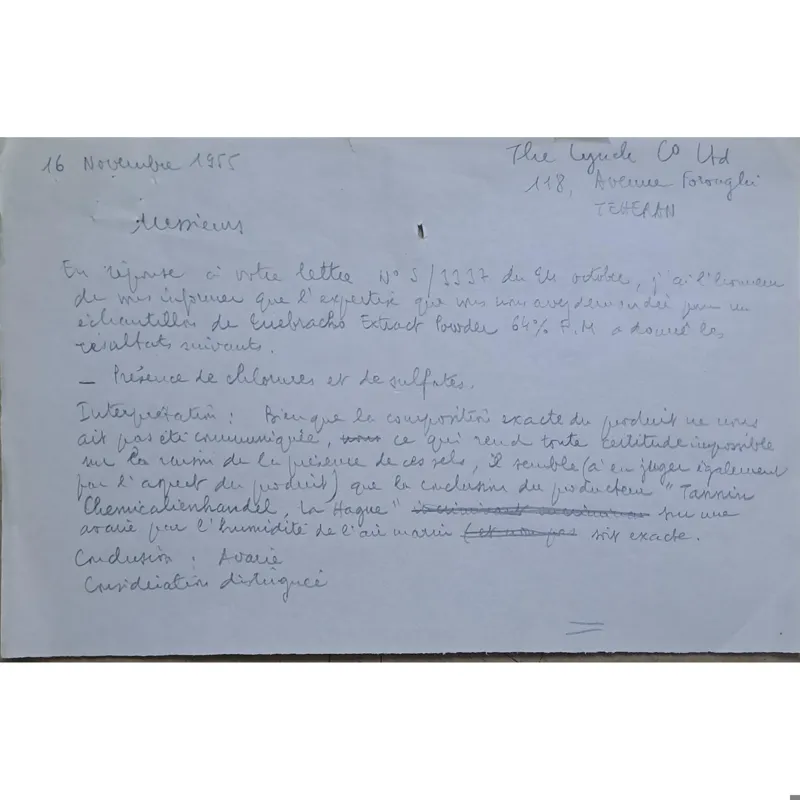 16 Novembre 1955
The Lynch Co Ltd
118, Avenue Foroughi
TEHERAN
Messieurs
En réponse à votre lettre N° S/3337 du 24 octobre, j'ai l'honneur
de vous informer que l'expertise que vous nous avez demandée pour un
échantillon de Quebracho Extract Powder 64% F.M a donné les
résultats suivants.
— Présence de chlorures et de sulfates.
Interprétation : Bien que la composition exacte du produit ne nous
ait pas été communiquée, ce qui rend toute certitude impossible
sur la raison de la présence de ces sels, il semble (à en juger également
par l'aspect du produit) que la conclusion du producteur "Tannin
Chemicalienhandel, La Hague" sur une
avarie par l'humidité de l'air marin (et non pas soit exacte.
Conclusion : Avarie
Considération distinguée